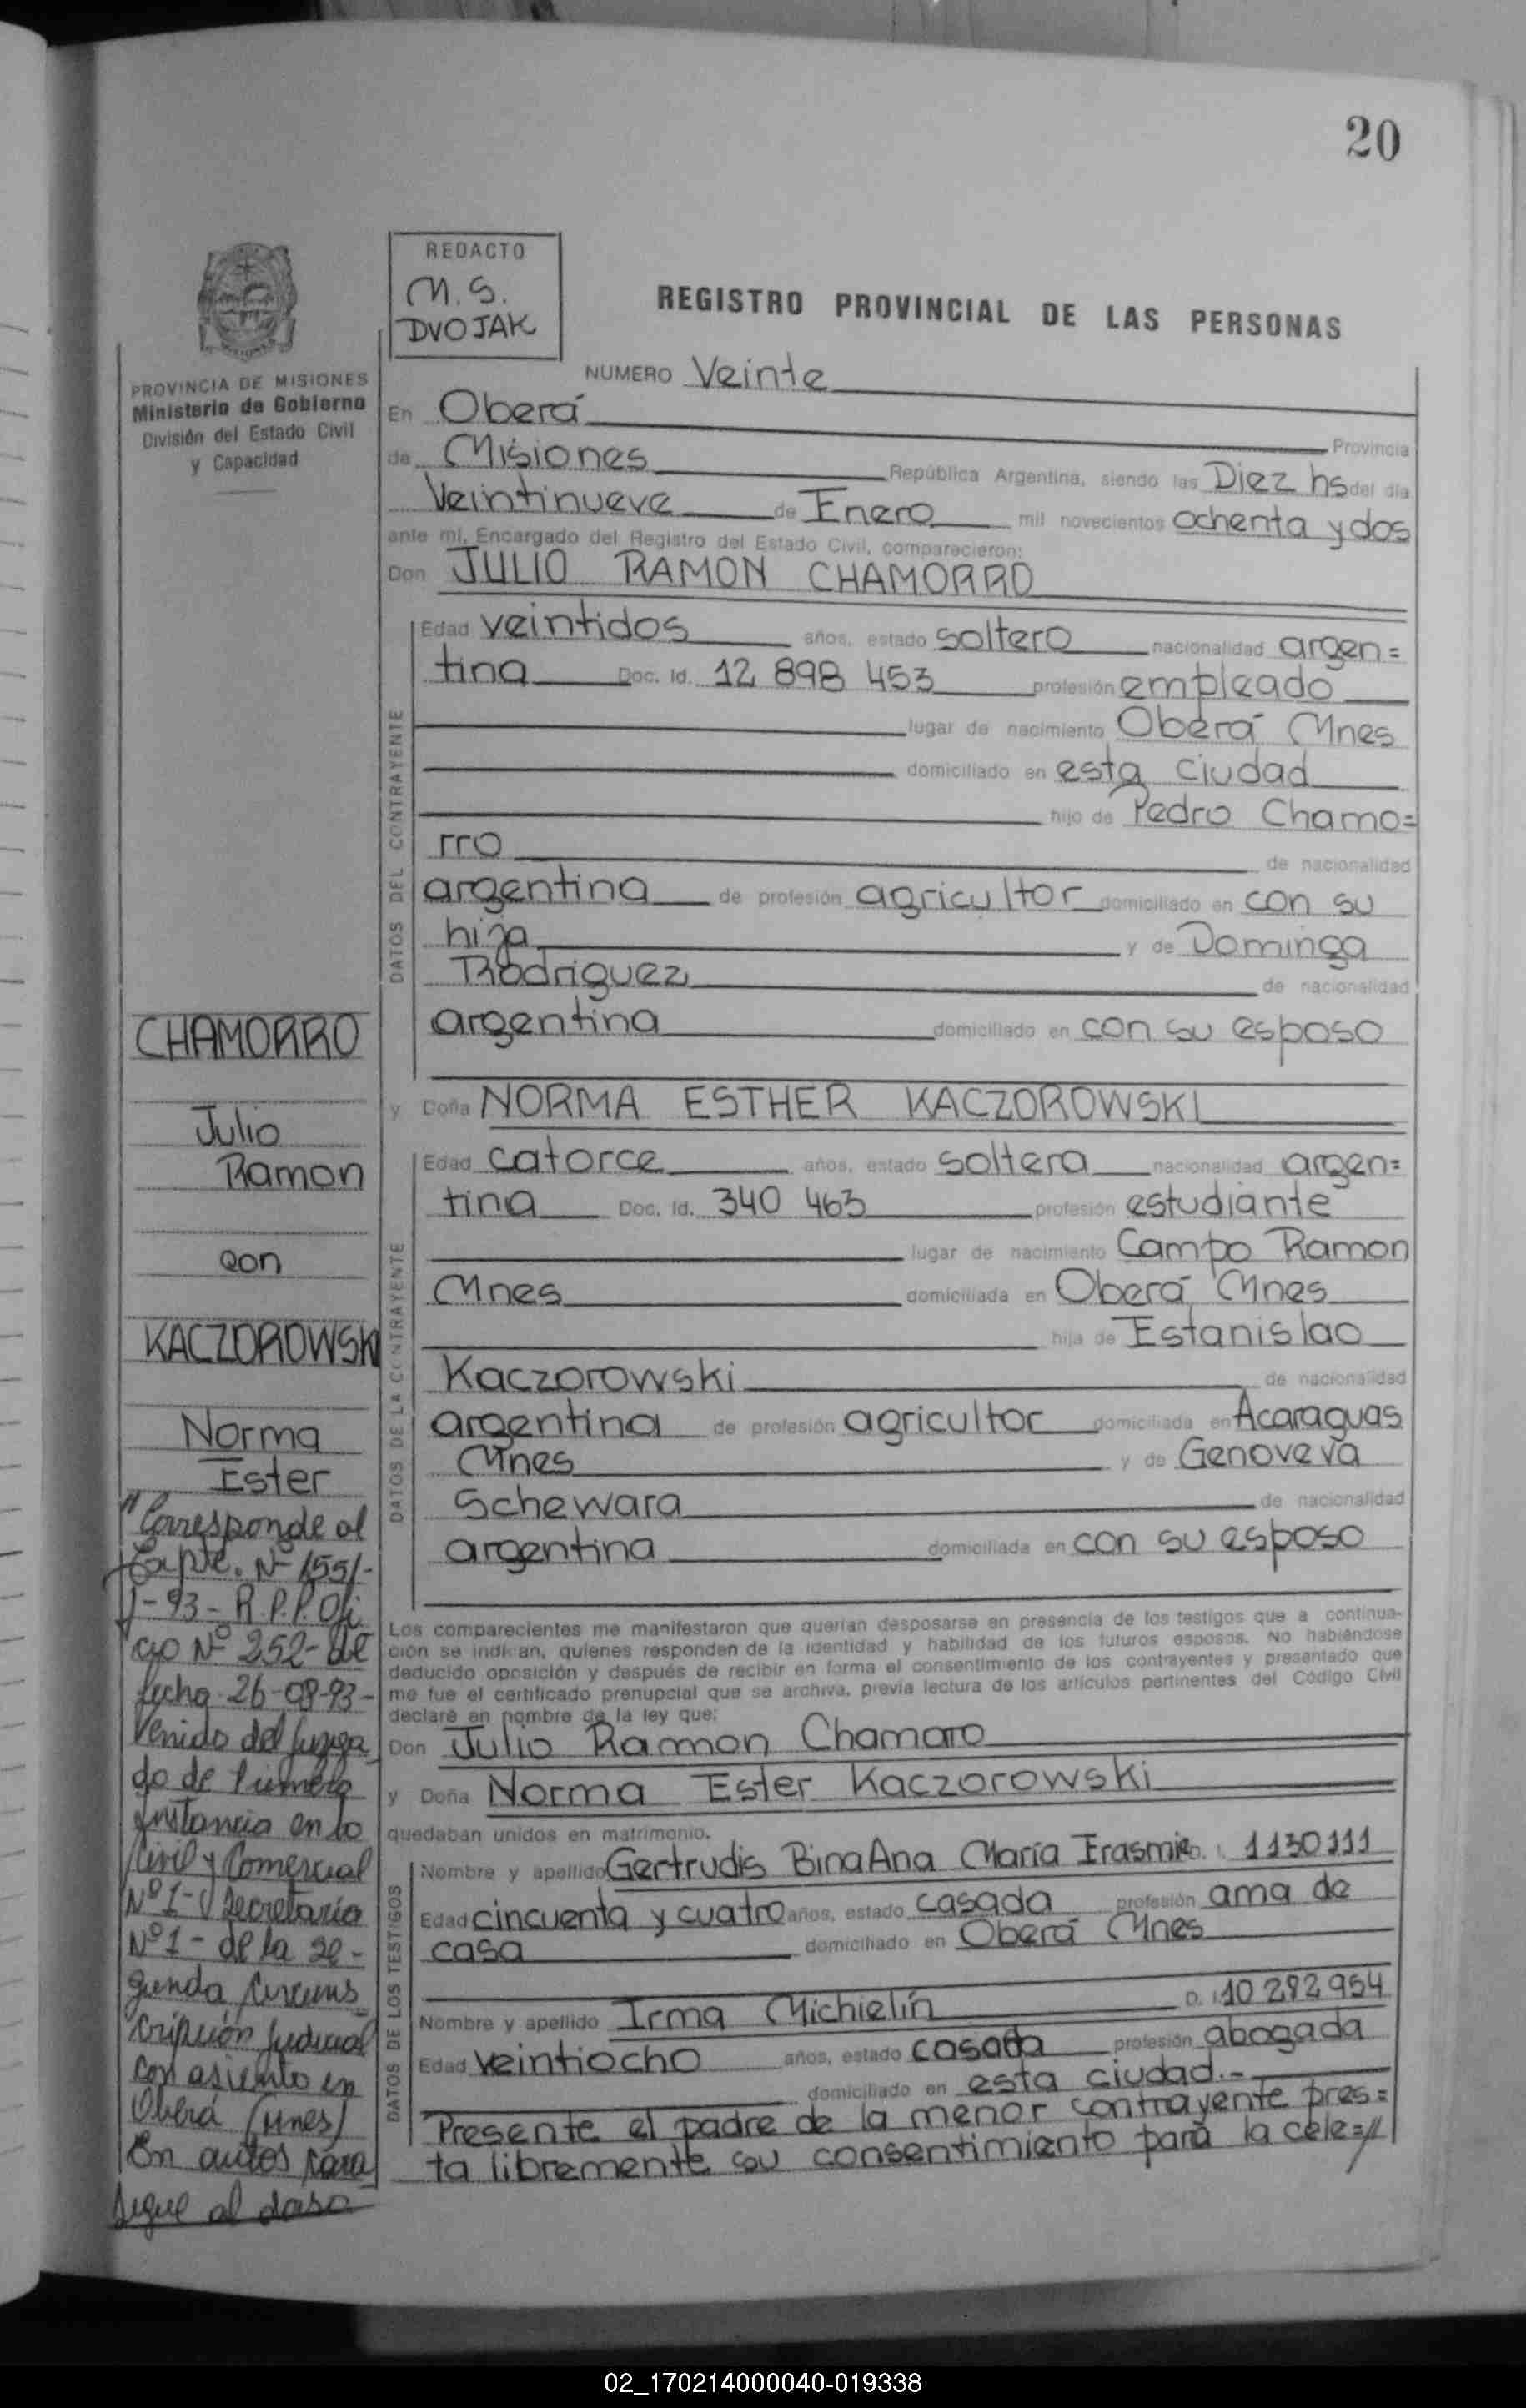 20
REDACTO
M. S.
DVOJAK
REGISTRO PROVINCIAL DE LAS PERSONAS
PROVINCIA DE MISIONES
Ministerio de Gobierno
División del Estado Civil
y Capacidad
NUMERO Veinte
En Oberá Provincia
de Misiones República Argentina, siendo las Diez hs del día
Veintinueve de Enero mil novecientos ochenta y dos
ante mí, Encargado del Registro del Estado Civil, comparecieron:
Don JULIO RAMON CHAMORRO
DATOS DEL CONTRAYENTE
Edad veintidos años, estado soltero nacionalidad argen=
tina Doc. Id. 12 898 453 profesión empleado
lugar de nacimiento Oberá Mnes
domiciliado en esta ciudad
hijo de Pedro Chamo=
rro de nacionalidad
argentina de profesión agricultor domiciliado en con su
hija y de Dominga
Rodriguez de nacionalidad
argentina domiciliado en con su esposo
y Doña NORMA ESTHER KACZOROWSKI
DATOS DE LA CONTRAYENTE
Edad catorce años, estado soltera nacionalidad argen=
tina Doc. Id. 340 463 profesión estudiante
lugar de nacimiento Campo Ramon
Mnes domiciliada en Oberá Mnes
hija de Estanislao
Kaczorowski de nacionalidad
argentina de profesión agricultor domiciliada en Acaraguas
Mnes y de Genoveva
Schewara de nacionalidad
argentina domiciliada en con su esposo
Los comparecientes me manifestaron que querían desposarse en presencia de los testigos que a continua-
ción se indican, quienes responden de la identidad y habilidad de los futuros esposos. No habiéndose
deducido oposición y después de recibir en forma el consentimiento de los contrayentes y presentado que
me fue el certificado prenupcial que se archiva, previa lectura de los artículos pertinentes del Código Civil
declaré en nombre de la ley que:
Don Julio Ramon Chamaro
y Doña Norma Ester Kaczorowski
quedaban unidos en matrimonio.
DATOS DE LOS TESTIGOS
Nombre y apellido Gertrudis Bina Ana María Erasmie 1130111
Edad cincuenta y cuatro años, estado casada profesión ama de
casa domiciliado en Oberá Mnes
Nombre y apellido Irma Michielín D. I. 10 282 954
Edad veintiocho años, estado casada profesión abogada
domiciliado en esta ciudad.-
Presente el padre de la menor contrayente pres=
ta libremente su consentimiento para la cele=//
CHAMORRO
Julio
Ramon
con
KACZOROWSKI
Norma
Ester
"Corresponde al
Expte. Nº 1551-
J-93- R.P.P. Ofi
cio Nº 252- de
fecha 26-08-93-
Venido del Juzga
do de Primera
Instancia en lo
Civil y Comercial
Nº 1- Secretaria
Nº 1- de la se-
gunda Circuns
cripción Judicial
con asiento en
Oberá (Mnes)
En autos para
Sigue al dorso
02_170214000040-019338